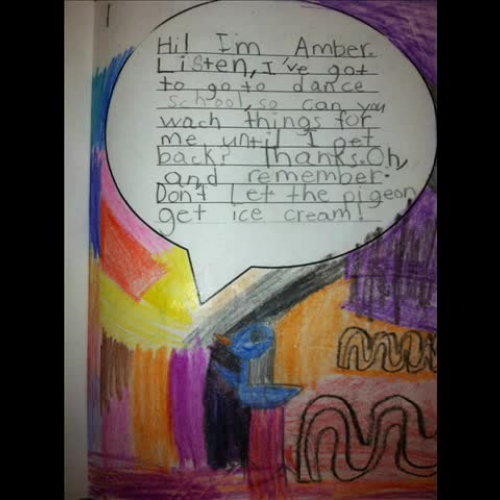 Hi! I'm Amber.
Listen, I've got
to go to dance
school, so can you
wach things for
me until I get
back? Thanks. Oh,
and remember.
Don't Let the pigeon
get ice cream!